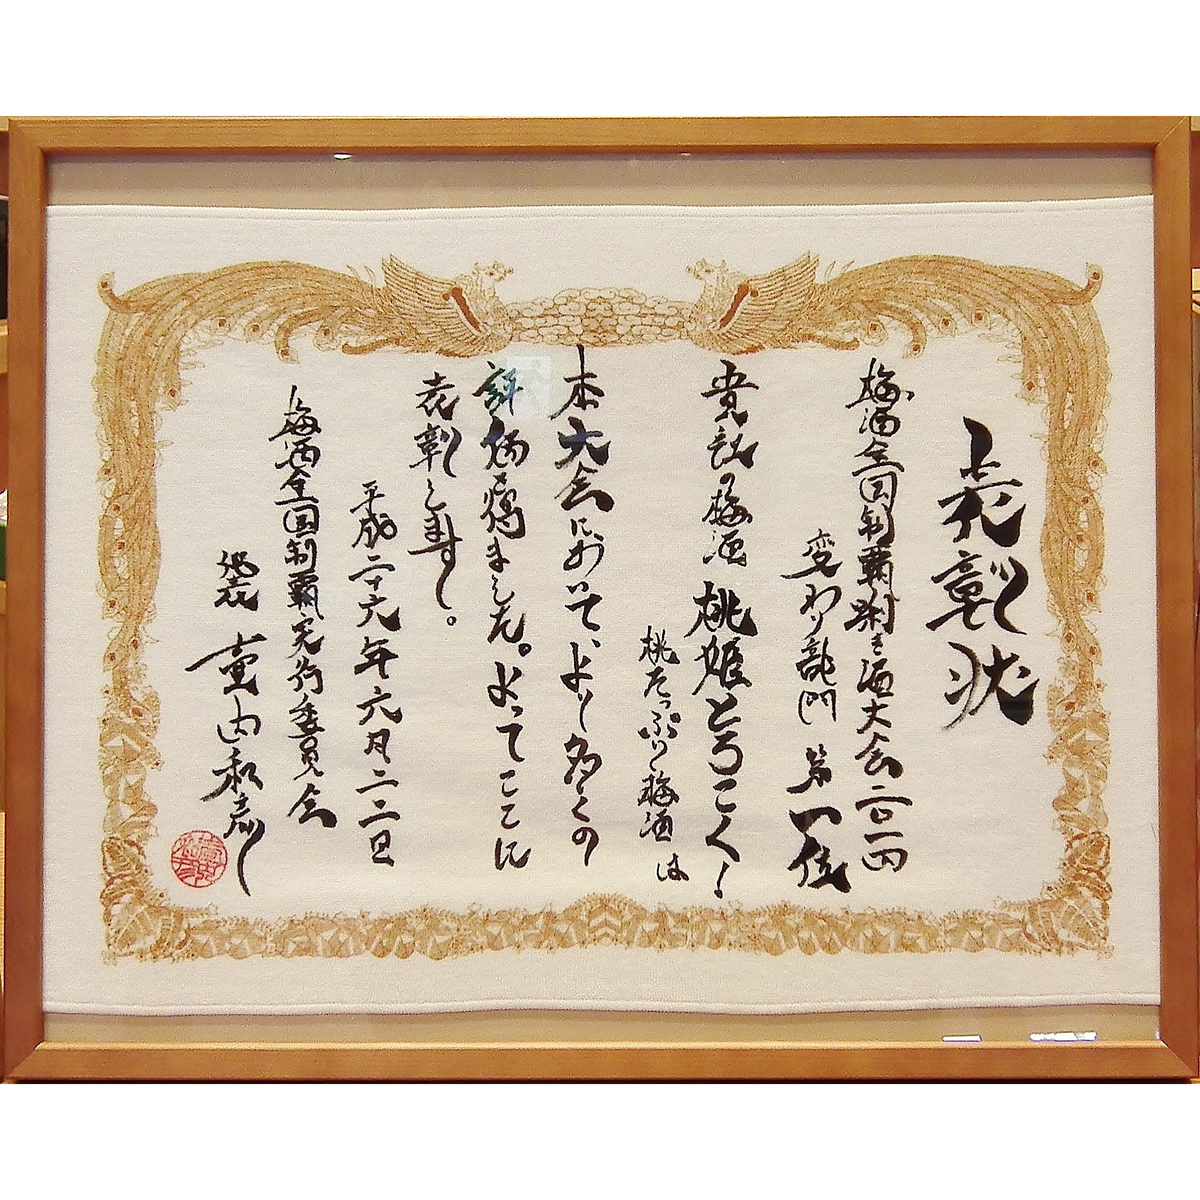 表彰状
梅酒全国制覇利き酒大会二〇一四
変わり部門 第一位
貴社の梅酒 桃姫とろこく！
桃たっぷり梅酒は
本大会において、より多くの
評価を得ました。よってここに
表彰します。
平成二十六年六月二二日
梅酒全国制覇実行委員会
代表